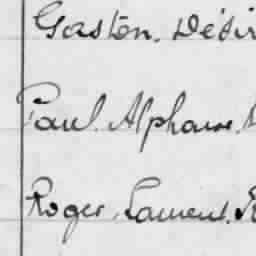 Gaston. Désir
Paul. Alphonse.
Roger, Laurent.